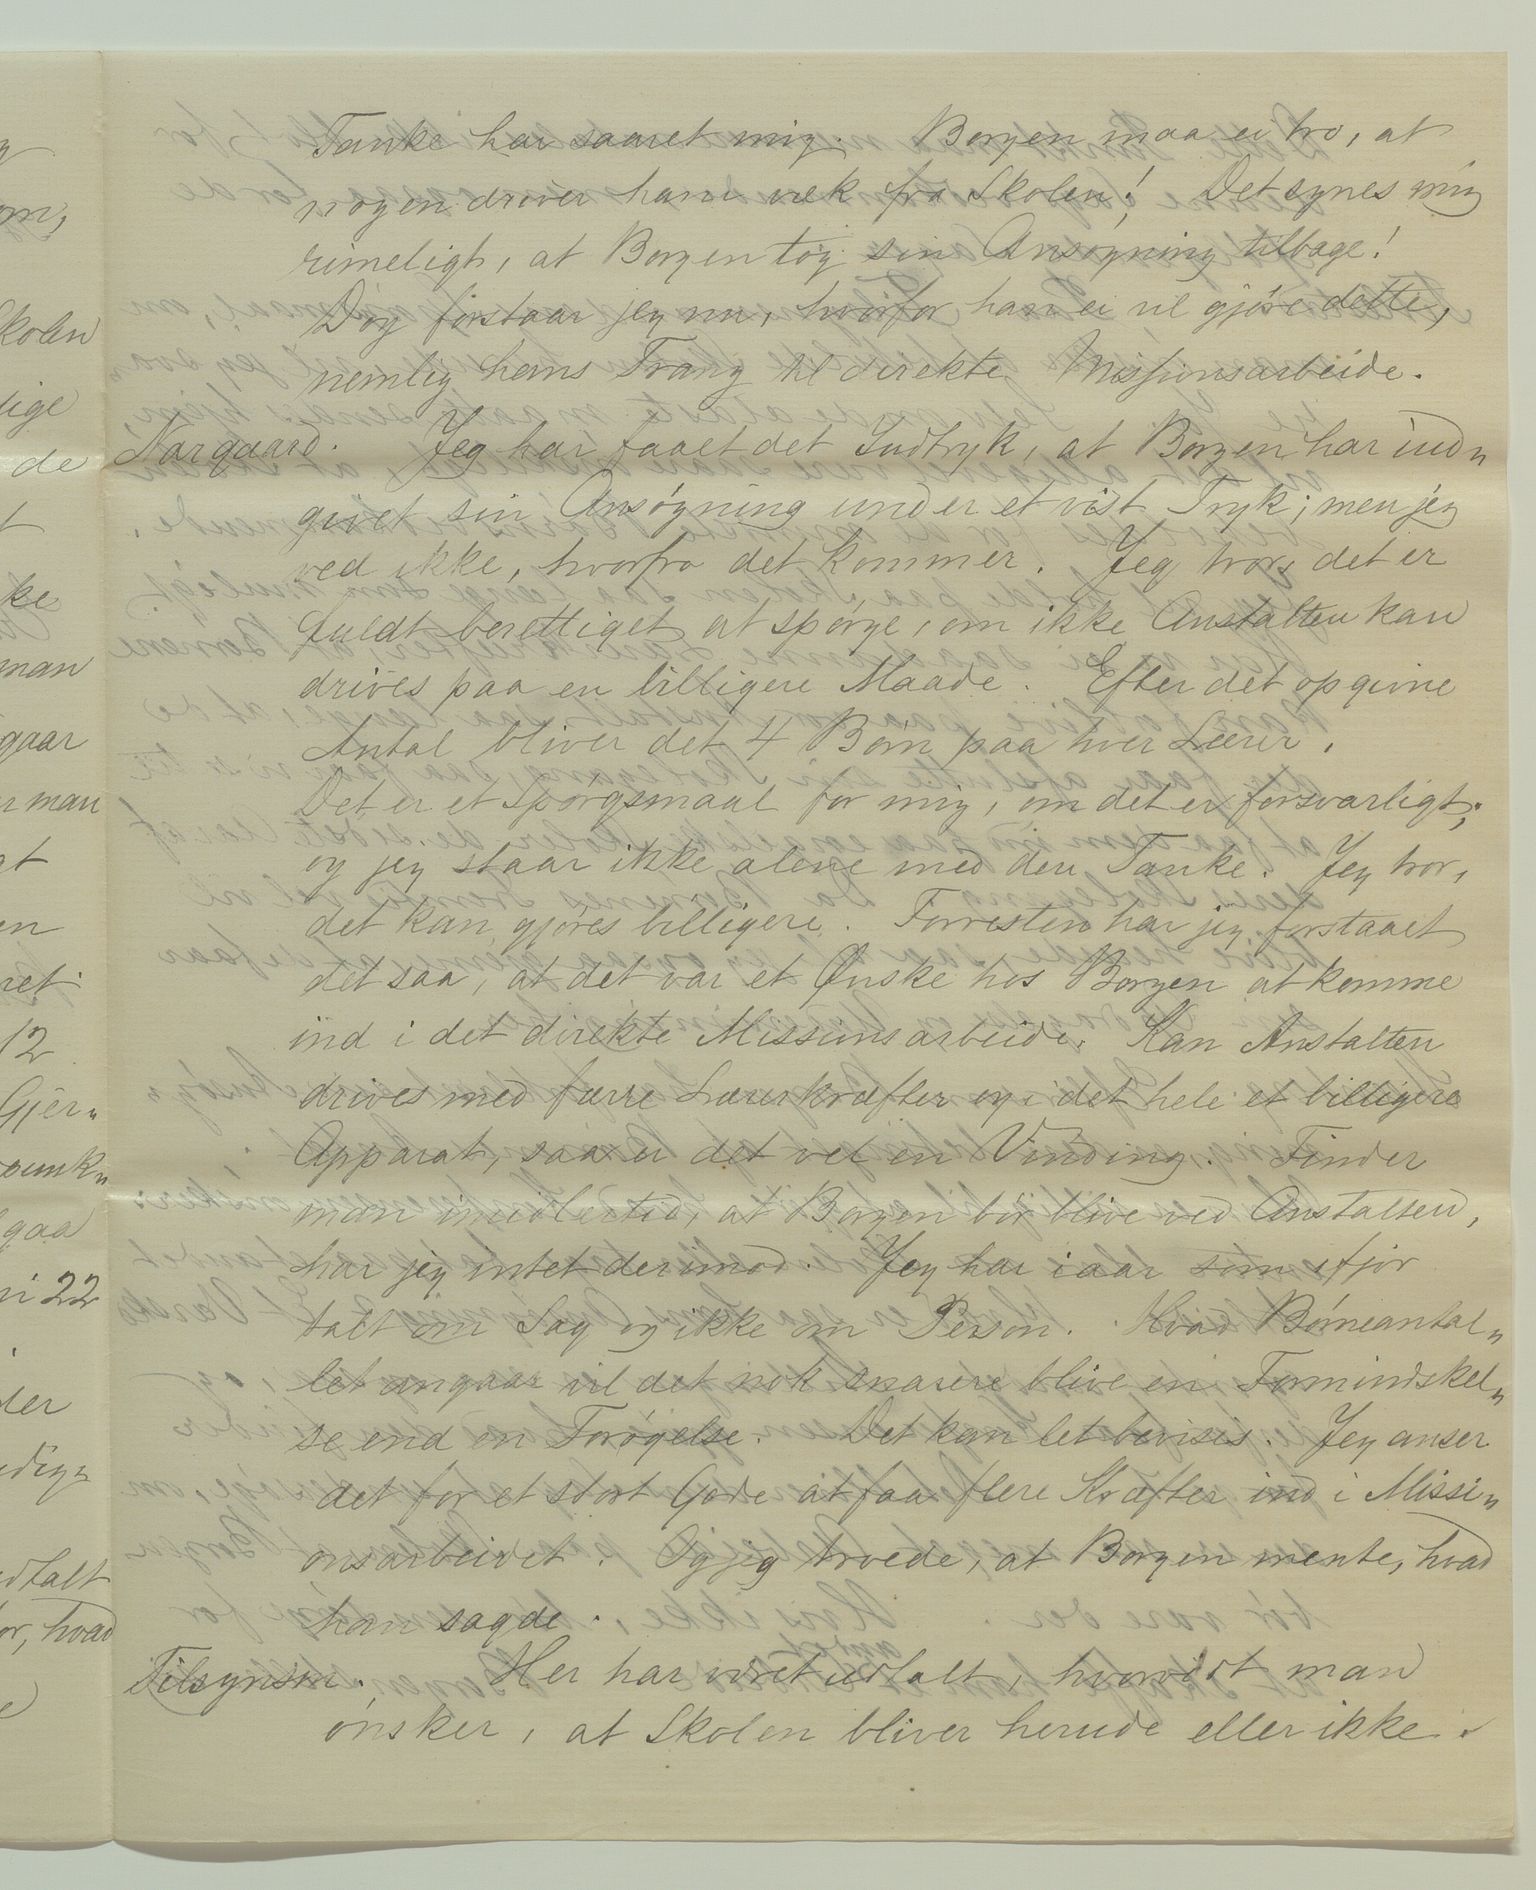 Tanke har saaret mig. Borgen maa ei tro, at
nogen driver ham væk fra Skolen! Det synes mig
rimeligt, at Borgen tog sin Ansøgning tilbage!
Dog forstaar jeg nu, hvorfor han ei vil gjøre dette,
nemlig hans Trang til direkte Missionsarbeide.
Norgaard. Jeg har faaet det Indtryk, at Borgen har ind„
givet sin Ansøgning under et vist Tryk; men jeg
ved ikke, hvorfra det kommer. Jeg tror, det er
fuldt berettiget at spørge, om ikke Anstalten kan
drives paa en billigere Maade. Efter det opgivne
Antal bliver det 4 Børn paa hver Lærer.
Det er et Spørgsmaal for mig, om det er forsvarligt;
og jeg staar ikke alene med den Tanke. Jeg tror,
det kan gjøres billigere. Forresten har jeg forstaaet
det saa, at det var et Ønske hos Borgen at komme
ind i det direkte Missionsarbeide. Kan Anstalten
drives med færre Lærerkræfter og i det hele et billigere
Apparat, saa er det vel en Vinding. Finder
man imidlertid, at Borgen bør blive ved Anstalten,
har jeg intet derimod. Jeg har iaar som ifjor
talt om Sag og ikke om Person. Hvad Børneantal„
let angaar vil det nok snarere blive en Formindskel„
se end en Forøgelse. Det kan let bevises. Jeg anser
det for et stort Gode at faa flere Kræfter ind i Missi„
onsarbeidet. Og jeg troede, at Borgen mente, hvad
han sagde.
Tilsynsm. Her har været udtalt, hvorvidt man
ønsker, at Skolen bliver herude eller ikke.
kolen
lige
de
ke
man
gaar
r man
at
en
ret
12
Gjer„
punk„
gaa
22
der
dtalt
or, hvad